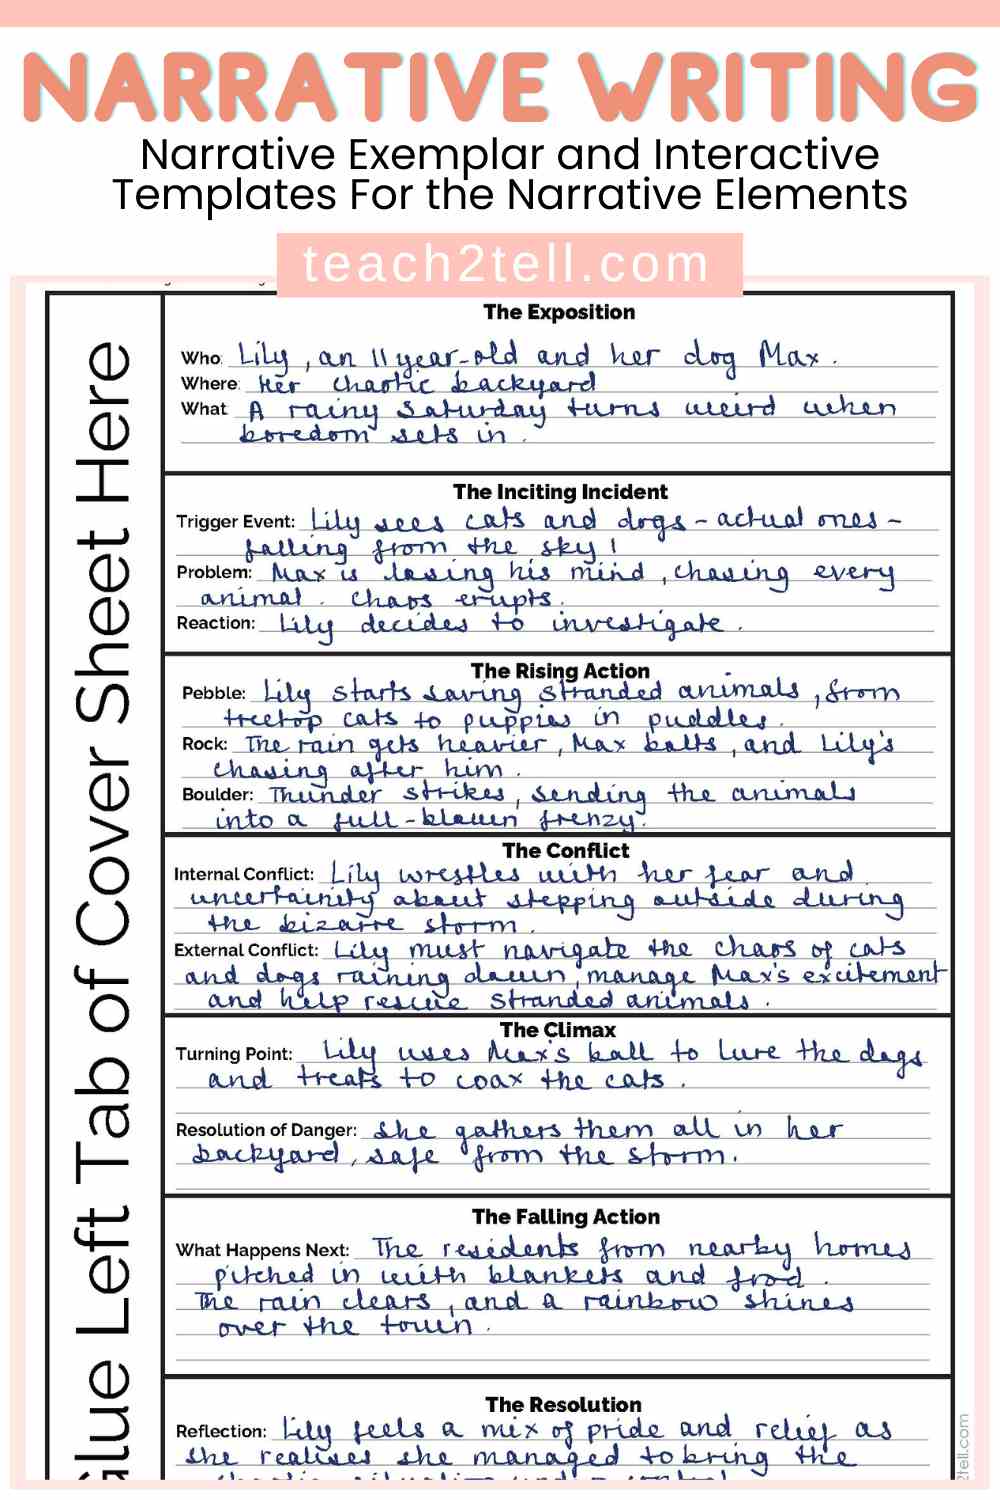 NARRATIVE WRITING
Narrative Exemplar and Interactive
Templates For the Narrative Elements
teach2tell.com
Glue Left Tab of Cover Sheet Here
The Exposition
Who: Lily, an 11 year-old and her dog Max.
Where: Her chaotic backyard
What A rainy Saturday turns weird when
boredom sets in.
The Inciting Incident
Trigger Event: Lily sees cats and dogs - actual ones -
falling from the sky!
Problem: Max is losing his mind, chasing every
animal. Chaos erupts.
Reaction: Lily decides to investigate.
The Rising Action
Pebble: Lily starts saving stranded animals, from
treetop cats to puppies in puddles.
Rock: The rain gets heavier, Max bolts, and Lily's
chasing after him.
Boulder: Thunder strikes, sending the animals
into a full-blown frenzy.
The Conflict
Internal Conflict: Lily wrestles with her fear and
uncertainity about stepping outside during
the bizarre storm.
External Conflict: Lily must navigate the chaos of cats
and dogs raining down, manage Max's excitement
and help rescue stranded animals.
The Climax
Turning Point: Lily uses Max's ball to lure the dogs
and treats to coax the cats.
Resolution of Danger: She gathers them all in her
backyard, safe from the storm.
The Falling Action
What Happens Next: The residents from nearby homes
pitched in with blankets and food.
The rain clears, and a rainbow shines
over the town.
The Resolution
Reflection: Lily feels a mix of pride and relief as
she realises she managed to bring the
2tell.com